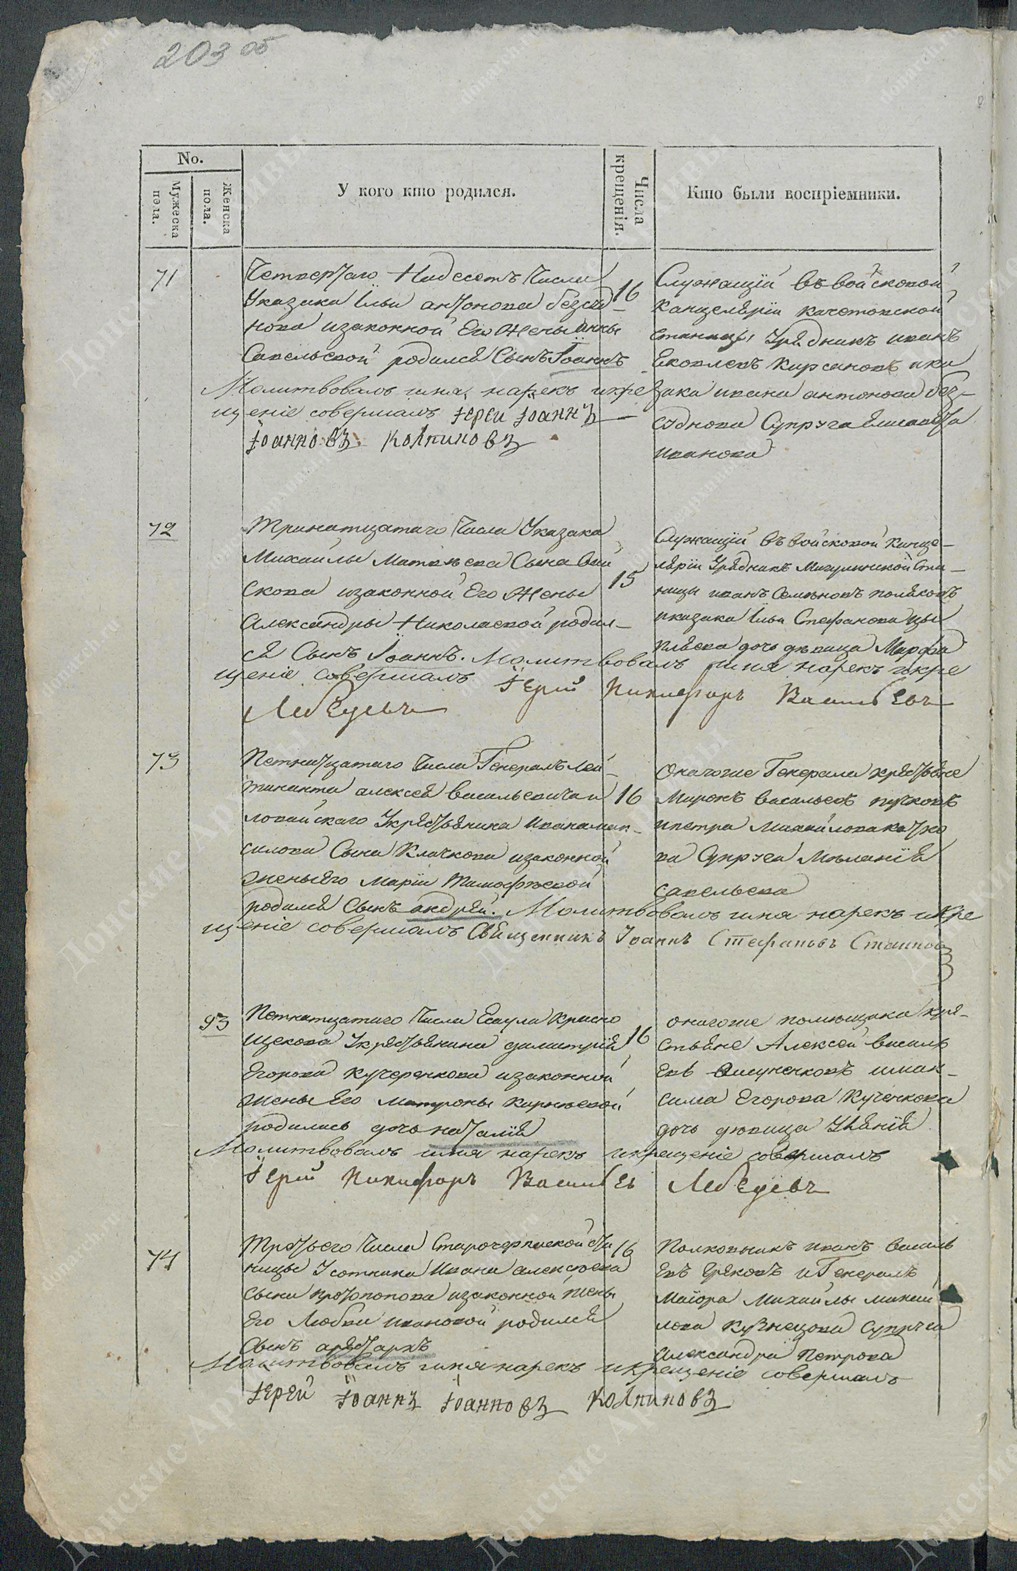 203 об
No.
Мужеска пола.
Женска пола.
У кого кто родился.
Числа крещенія.
Кто были воспріемники.
71
Четвертаго Надесеть Числа
Указака Ильи антонова безсед-
нова изаконной Его Жены анны
Савельевой родился Сынъ Іоаннъ
Молитвовалъ имя нарекъ икре
щеніе совершалъ Іерей Іоаннъ
Іоанновъ Колпиновъ
16
Служащій въ войсковой
Канцеляріи качетовской
станицы Урядникъ иванъ
Яковлевъ Кирсановъ и ка
зака ивана антонова без-
соднова Супруга Елисавета
иванова
72
Тринатцатаго Числа Указака
Михайлы Матвѣева Сына
скова изаконной Его Жены
Александры Николаевой родил-
ся Сынъ Іоаннъ. Молитвовалъ имя нарекъ икре
щеніе совершалъ Іерей Никифоръ Васильевъ
Лебедевъ
15
Служащій въ войсковой Канце-
ляріи Урядникъ Мигулинской Ста-
ницы иванъ Семеновъ поляковъ
иказака Ильи Стефанова
дочь дѣвица Марфа
73
Петнатцатаго Числа Генералъ Лей-
тинанта алексея васильевича и
ловайскаго Укрестьянина ивана мак-
симова Сына Клачкова изаконной
жены его Маріи Тимофѣевой
родился Сынъ андрей. Молитвовалъ имя нарекъ икре
щеніе совершалъ Священникъ Іоаннъ Стефановъ
16
Оногоже Генерала крестьяне
Миронъ васильевъ пучковъ
ипетра Михайлова
ва Супруга Меланія
савельева
93
Петнатцатаго Числа Есаула Красно
щекова Укрестьянина димитрія
Егорова кучеренкова изаконной
жены Его матроны карнѣевой
родилась дочь наталія
Молитвовалъ имя нарекъ икрещеніе совершалъ
Іерей Никифоръ Васильевъ Лебедевъ
16
оногоже помещика кре-
стьяне Алексей василь
евъ имак-
сима Егорова Кученкова
дочь дѣвица
74
Третьего Числа Старочеркаской ста
ницы Усотника Ивана алексеева
сына протопопова изаконной жены
Его Любви ивановой родился
сынъ
Молитвовалъ имя нарекъ икрещеніе совершалъ
Іерей Іоаннъ Іоанновъ Колпиновъ
16
Полковникъ иванъ василь
евъ и Генералъ
Маіора Михайлы михай
лова Кузнецова Супруга
Александра Петрова